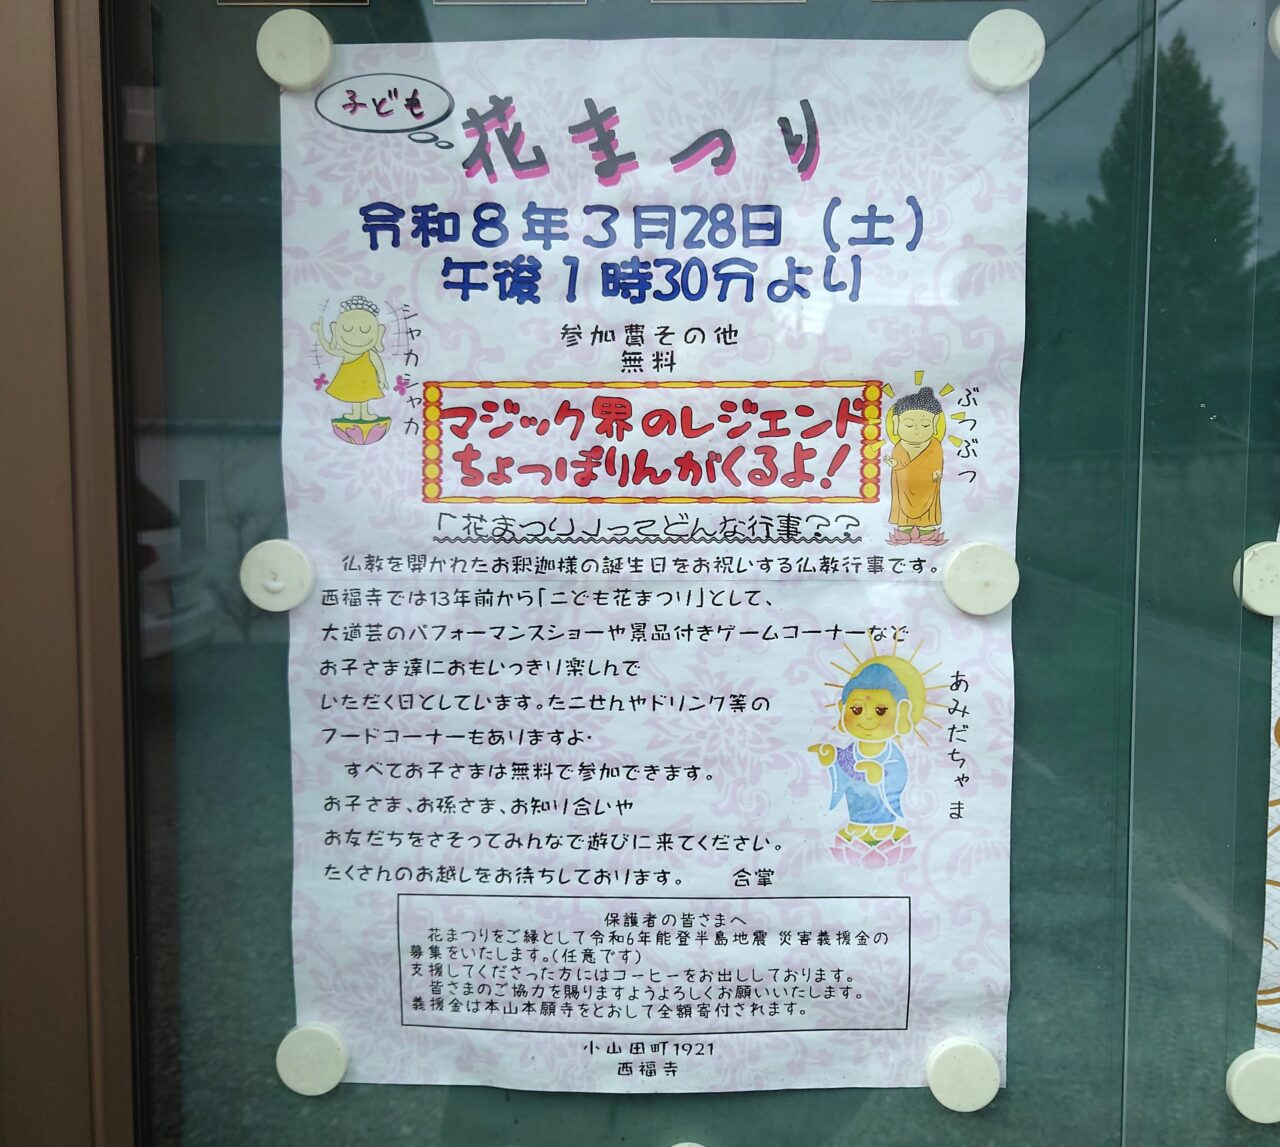 子ども
花まつり
令和8年3月28日（土）
午後1時30分より
参加費その他
無料
シャカシャカ
マジック界のレジェンド
ちょっぽりんがくるよ！
ぶつぶつ
「花まつり」ってどんな行事？？
仏教を開かれたお釈迦様の誕生日をお祝いする仏教行事です。
西福寺では13年前から「こども花まつり」として、
大道芸のパフォーマンスショーや景品付きゲームコーナーなど
お子さま達におもいっきり楽しんで
いただく日としています。たこせんやドリンク等の
フードコーナーもありますよ・
すべてお子さまは無料で参加できます。
お子さま、お孫さま、お知り合いや
お友だちをさそってみんなで遊びに来てください。
たくさんのお越しをお待ちしております。　合掌
あみだちゃま
保護者の皆さまへ
花まつりをご縁として令和6年能登半島地震 災害義援金の
募集をいたします。(任意です)
支援してくださった方にはコーヒーをお出ししております。
皆さまのご協力を賜りますようよろしくお願いいたします。
義援金は本山本願寺をとおして全額寄付されます。
小山田町1921
西福寺